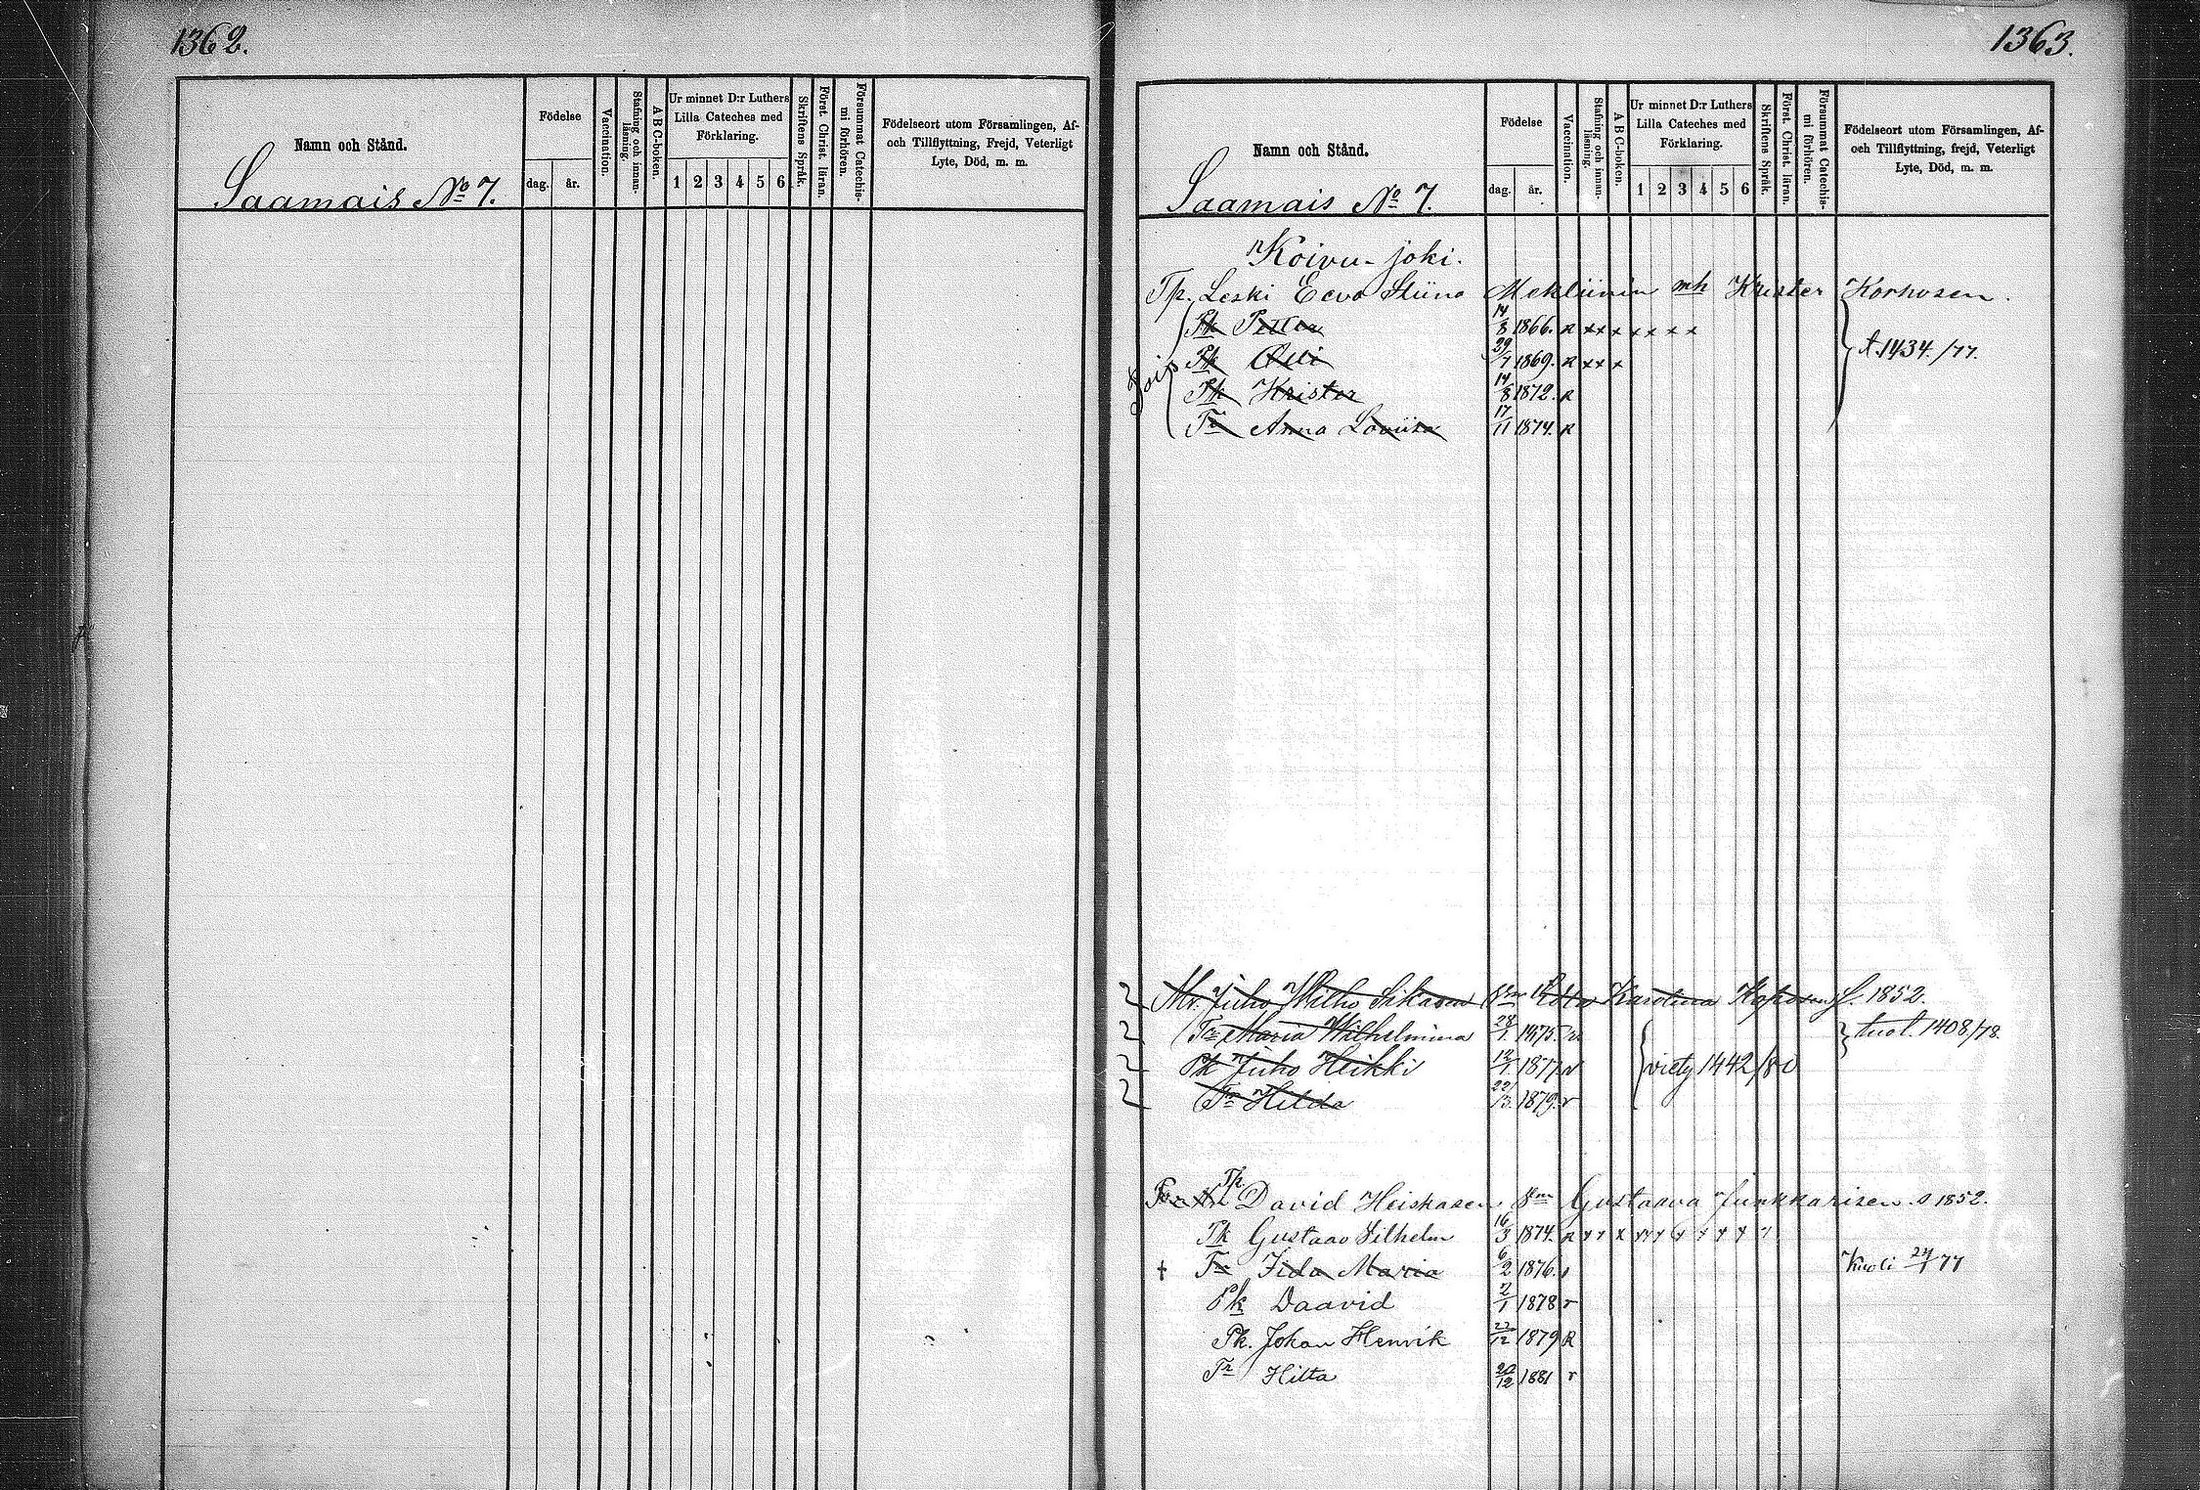 1362.
Namn och Stånd.
Saamais No 7.
Födelse
dag. år.
Vaccination.
Stafning och innan-läsning.
A B C-boken.
Ur minnet D:r Luthers
Lilla Cateches med
Förklaring.
1 2 3 4 5 6
Skriftens Språk.
Först. Christ. läran.
Försummat Catechis-
mi förhören.
Födelseort utom Församlingen, Af-
och Tillflyttning, Frejd, Veterligt
Lyte, Död, m. m.
1363.
Namn och Stånd.
Saamais No 7.
Födelse
dag. år.
Vaccination.
Stafning och innan-läsning.
A B C-boken.
Ur minnet D:r Luthers
Lilla Cateches med
Förklaring.
1 2 3 4 5 6
Skriftens Språk.
Först. Christ. läran.
Försummat Catechis-
mi förhören.
Födelseort utom Församlingen, Af-
och Tillflyttning, frejd, Veterligt
Lyte, Död, m. m.
Koivu-joki.
Tp. Leski Eeva Stiina mh Krister Korhosen.
Pk Petter 14/8 1866. R x x x x x x x
Pk Otti 29/7 1869. R x x x 1434./77.
Pk Krister 14/8 1872. R
Tr Anna Loviisa 17/11 1874. R
Pois
Mr. Juho Wilho Sikanen Karolina 1852.
Tr Maria Wilhelmina 1875. 1408/78.
Pk Juho Heikki 1877 viety 1442/80
Tr Hilda 1879. r
Tp. David Heiskasen Gustaava Junkkarisen s 1852.
Pk Gustaav Vilhelm 16/3 1874. R
† Tr Fida Maria 6/2 1876. Kuoli 77
Pk Daavid 2/1 1878 r
Pk. Johan Henrik 22/12 1879 R
Tr Hilta 20/12 1881 r